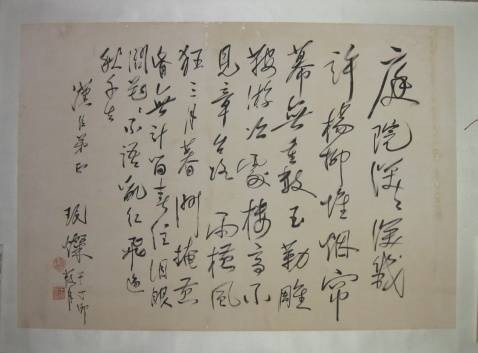 庭院深〻深幾
許楊柳堆烟帘
幕無重數玉勒雕
鞍游冶處樓高不
見章台路雨横風
狂三月暮門掩黄
昏無計留春住泪眼
問花〻不语亂红飛过
秋千去
漢臣弟正